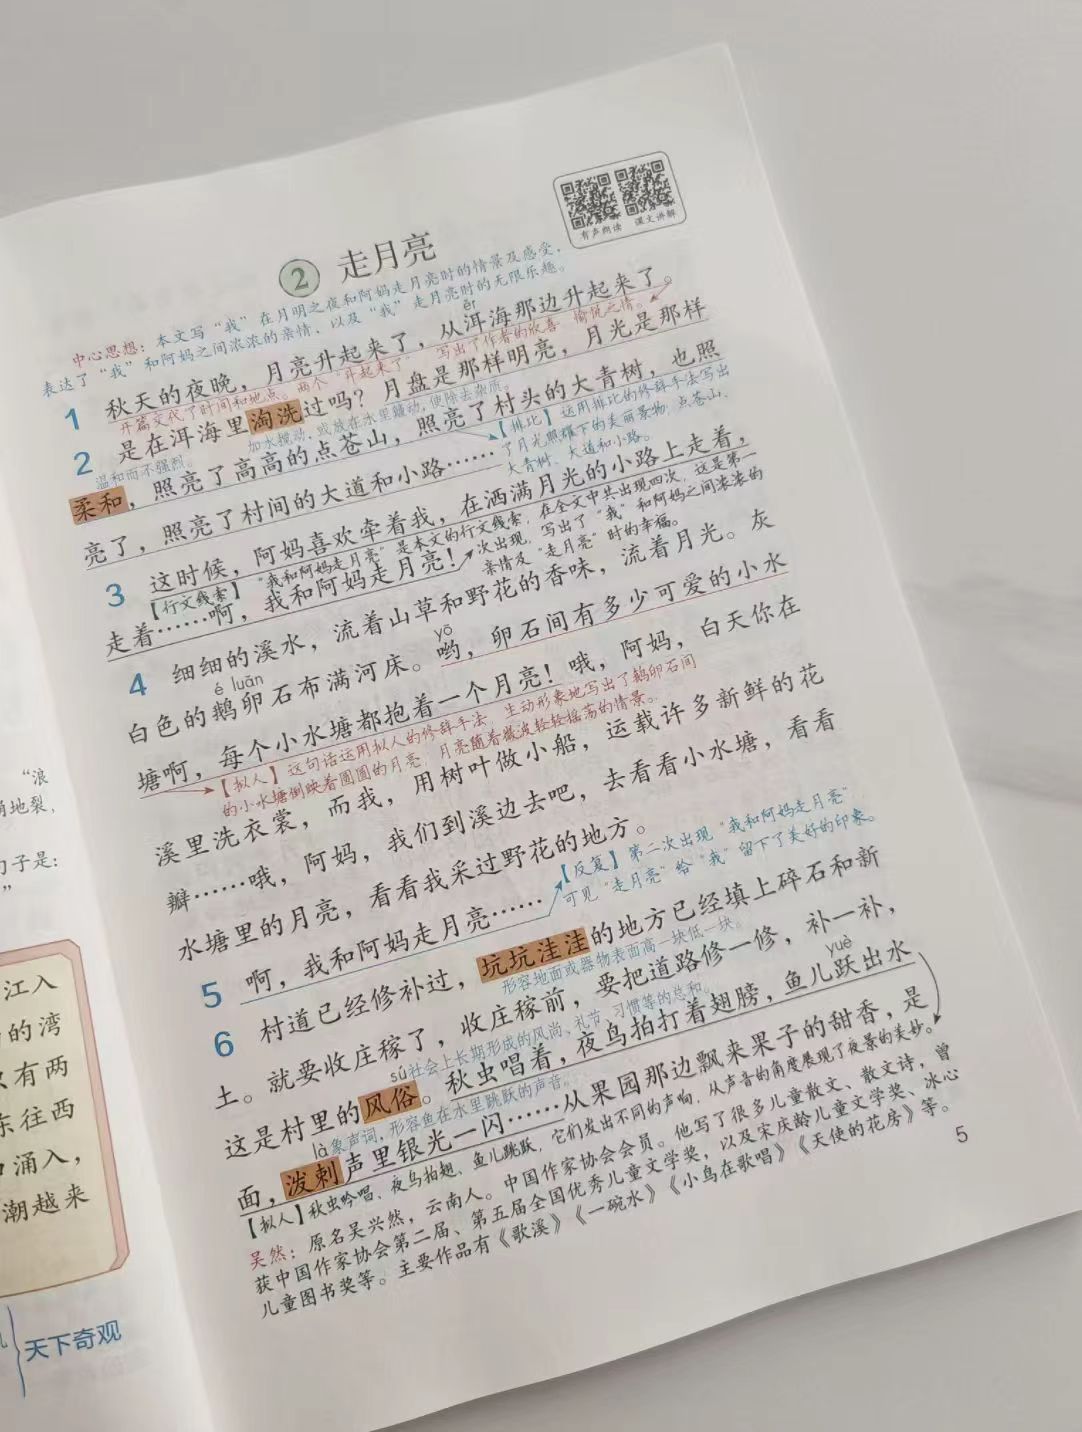 有声朗读 课文讲解
② 走月亮
中心思想：本文写“我”在月明之夜和阿妈走月亮时的情景及感受，
表达了“我”和阿妈之间浓浓的亲情，以及“我”走月亮时的无限乐趣。
ěr
1 秋天的夜晚，月亮升起来了，从洱海那边升起来了。
开篇交代了时间和地点。两个“升起来了”写出了作者的欣喜、愉悦之情。
2 是在洱海里淘洗过吗？月盘是那样明亮，月光是那样
温和而不强烈。
加水搅动，或放在水里颤动，使除去杂质。
柔和，照亮了高高的点苍山，照亮了村头的大青树，也照
【排比】运用排比的修辞手法写出
了月光照耀下的美丽景物：点苍山、
大青树、大道和小路。
亮了，照亮了村间的大道和小路……
3 这时候，阿妈喜欢牵着我，在洒满月光的小路上走着，
【行文线索】“我和阿妈走月亮”是本文的行文线索，在全文中共出现四次，这是第一
次出现，写出了“我”和阿妈之间浓浓的
亲情及“走月亮”时的幸福。
走着……啊，我和阿妈走月亮！
4 细细的溪水，流着山草和野花的香味，流着月光。灰
é luǎn
yō
白色的鹅卵石布满河床。哟，卵石间有多少可爱的小水
塘啊，每个小水塘都抱着一个月亮！哦，阿妈，白天你在
【拟人】这句话运用拟人的修辞手法，生动形象地写出了鹅卵石间
的小水塘倒映着圆圆的月亮，月亮随着微波轻轻摇荡的情景。
溪里洗衣裳，而我，用树叶做小船，运载许多新鲜的花
瓣……哦，阿妈，我们到溪边去吧，去看看小水塘，看看
水塘里的月亮，看看我采过野花的地方。
5 啊，我和阿妈走月亮……
【反复】第二次出现“我和阿妈走月亮”，
可见“走月亮”给“我”留下了美好的印象。
6 村道已经修补过，坑坑洼洼的地方已经填上碎石和新
形容地面或器物表面高一块低一块。
土。就要收庄稼了，收庄稼前，要把道路修一修，补一补，
sú社会上长期形成的风尚、礼节、习惯等的总和。
yuè
这是村里的风俗。秋虫唱着，夜鸟拍打着翅膀，鱼儿跃出水
là象声词，形容鱼在水里跳跃的声音。
面，泼刺声里银光一闪……从果园那边飘来果子的甜香，是
【拟人】秋虫吟唱、夜鸟拍翅、鱼儿跳跃，它们发出不同的声响，从声音的角度展现了夜景的美妙。
吴然：原名吴兴然，云南人。中国作家协会会员。他写了很多儿童散文、散文诗，曾
获中国作家协会第二届、第五届全国优秀儿童文学奖，以及宋庆龄儿童文学奖、冰心
儿童图书奖等。主要作品有《歌溪》《一碗水》《小鸟在歌唱》《天使的花房》等。
5
“浪
地裂，
子是：
”
江入
的湾
有两
东往西
涌入，
潮越来
天下奇观